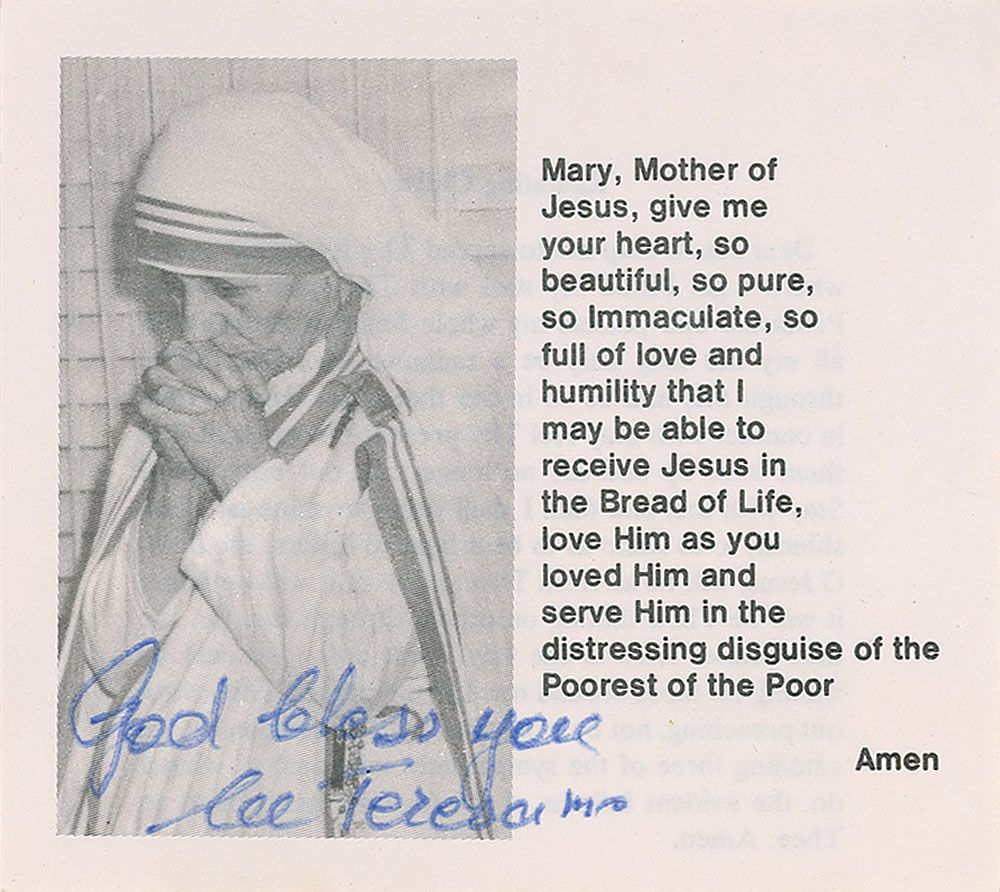 Mary, Mother of
Jesus, give me
your heart, so
beautiful, so pure,
so Immaculate, so
full of love and
humility that I
may be able to
receive Jesus in
the Bread of Life,
love Him as you
loved Him and
serve Him in the
distressing disguise of the
Poorest of the Poor
Amen
God bless you
lee Teresa mc